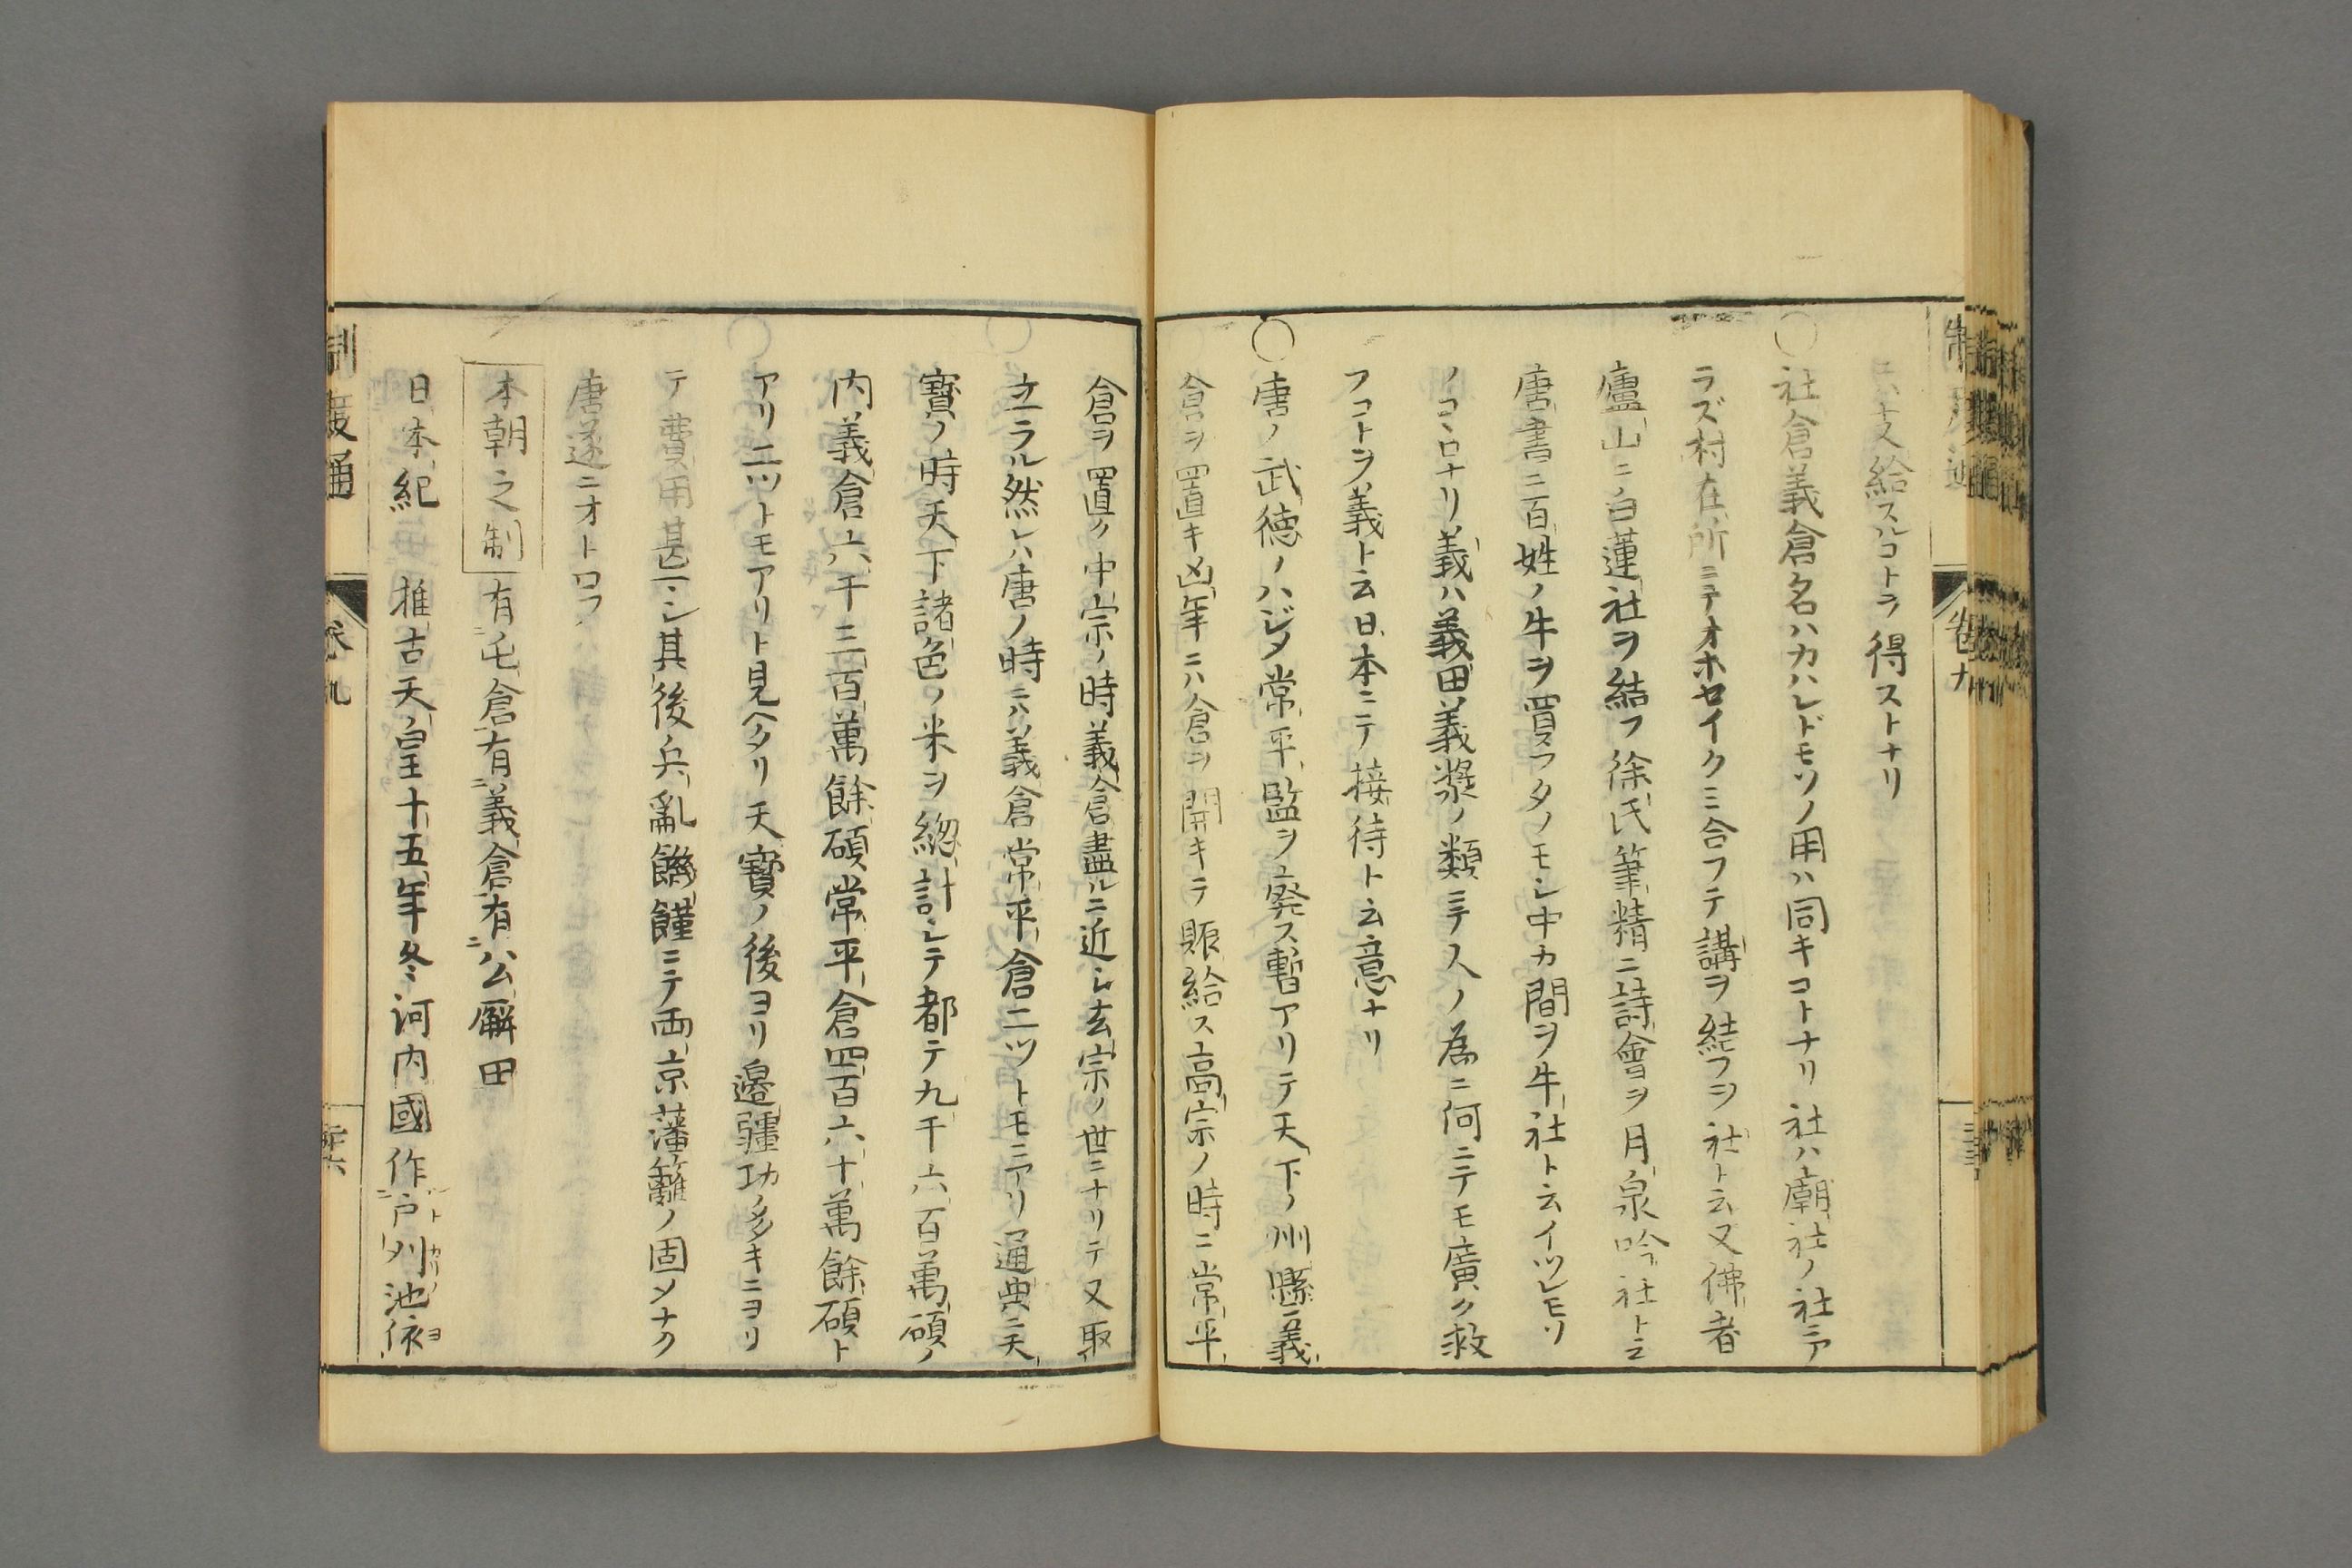 ニハ支給スルコトヲ得ストナリ
○社倉義倉名ハカハレドモソノ用ハ同キコトナリ社ハ廟社ノ社ニア
ラズ村在所ニテオホセイクミ合フテ講ヲ結フヲ社ト云又佛者
廬山ニ白蓮社ヲ結フ徐氏筆精ニ詩會ヲ月泉吟社ト云
唐書ニ百姓ノ牛ヲ買フタノモシ中カ間ヲ牛社ト云イツレモソ
ノコヽロナリ義ハ義田義漿ノ類ニテ人ノ為ニ何ニテモ廣ク救
フコトヲ義ト云日本ニテ接待ト云意ナリ
○唐ノ武徳ノハジメ常平監ヲ廃ス暫アリテ天下ノ州縣ニ義
倉ヲ置キ凶年ニハ倉ヲ開キテ賑給ス高宗ノ時ニ常平
倉ヲ置ク中宗ノ時義倉盡ルニ近シ玄宗ノ世ニナリテ又取
立ラル然レハ唐ノ時ニハ義倉常平倉二ツトモニアリ通典ニ天
寶ノ時天下諸色ノ米ヲ総計シテ都テ九千六百萬碩ノ
内義倉六千三百萬餘碩常平倉四百六十萬餘碩ト
アリ二ツトモアリト見ヘタリ天寶ノ後ヨリ邉疆功ノ多キニヨリ
テ費用甚タシ其後兵亂饑饉ニテ両京藩籬ノ固メナク
唐遂ニオトロフ
本朝之制 有屯倉有義倉有公廨田
日本紀 推古天皇十五年冬河内國作戸刈池依
制度通 巻九